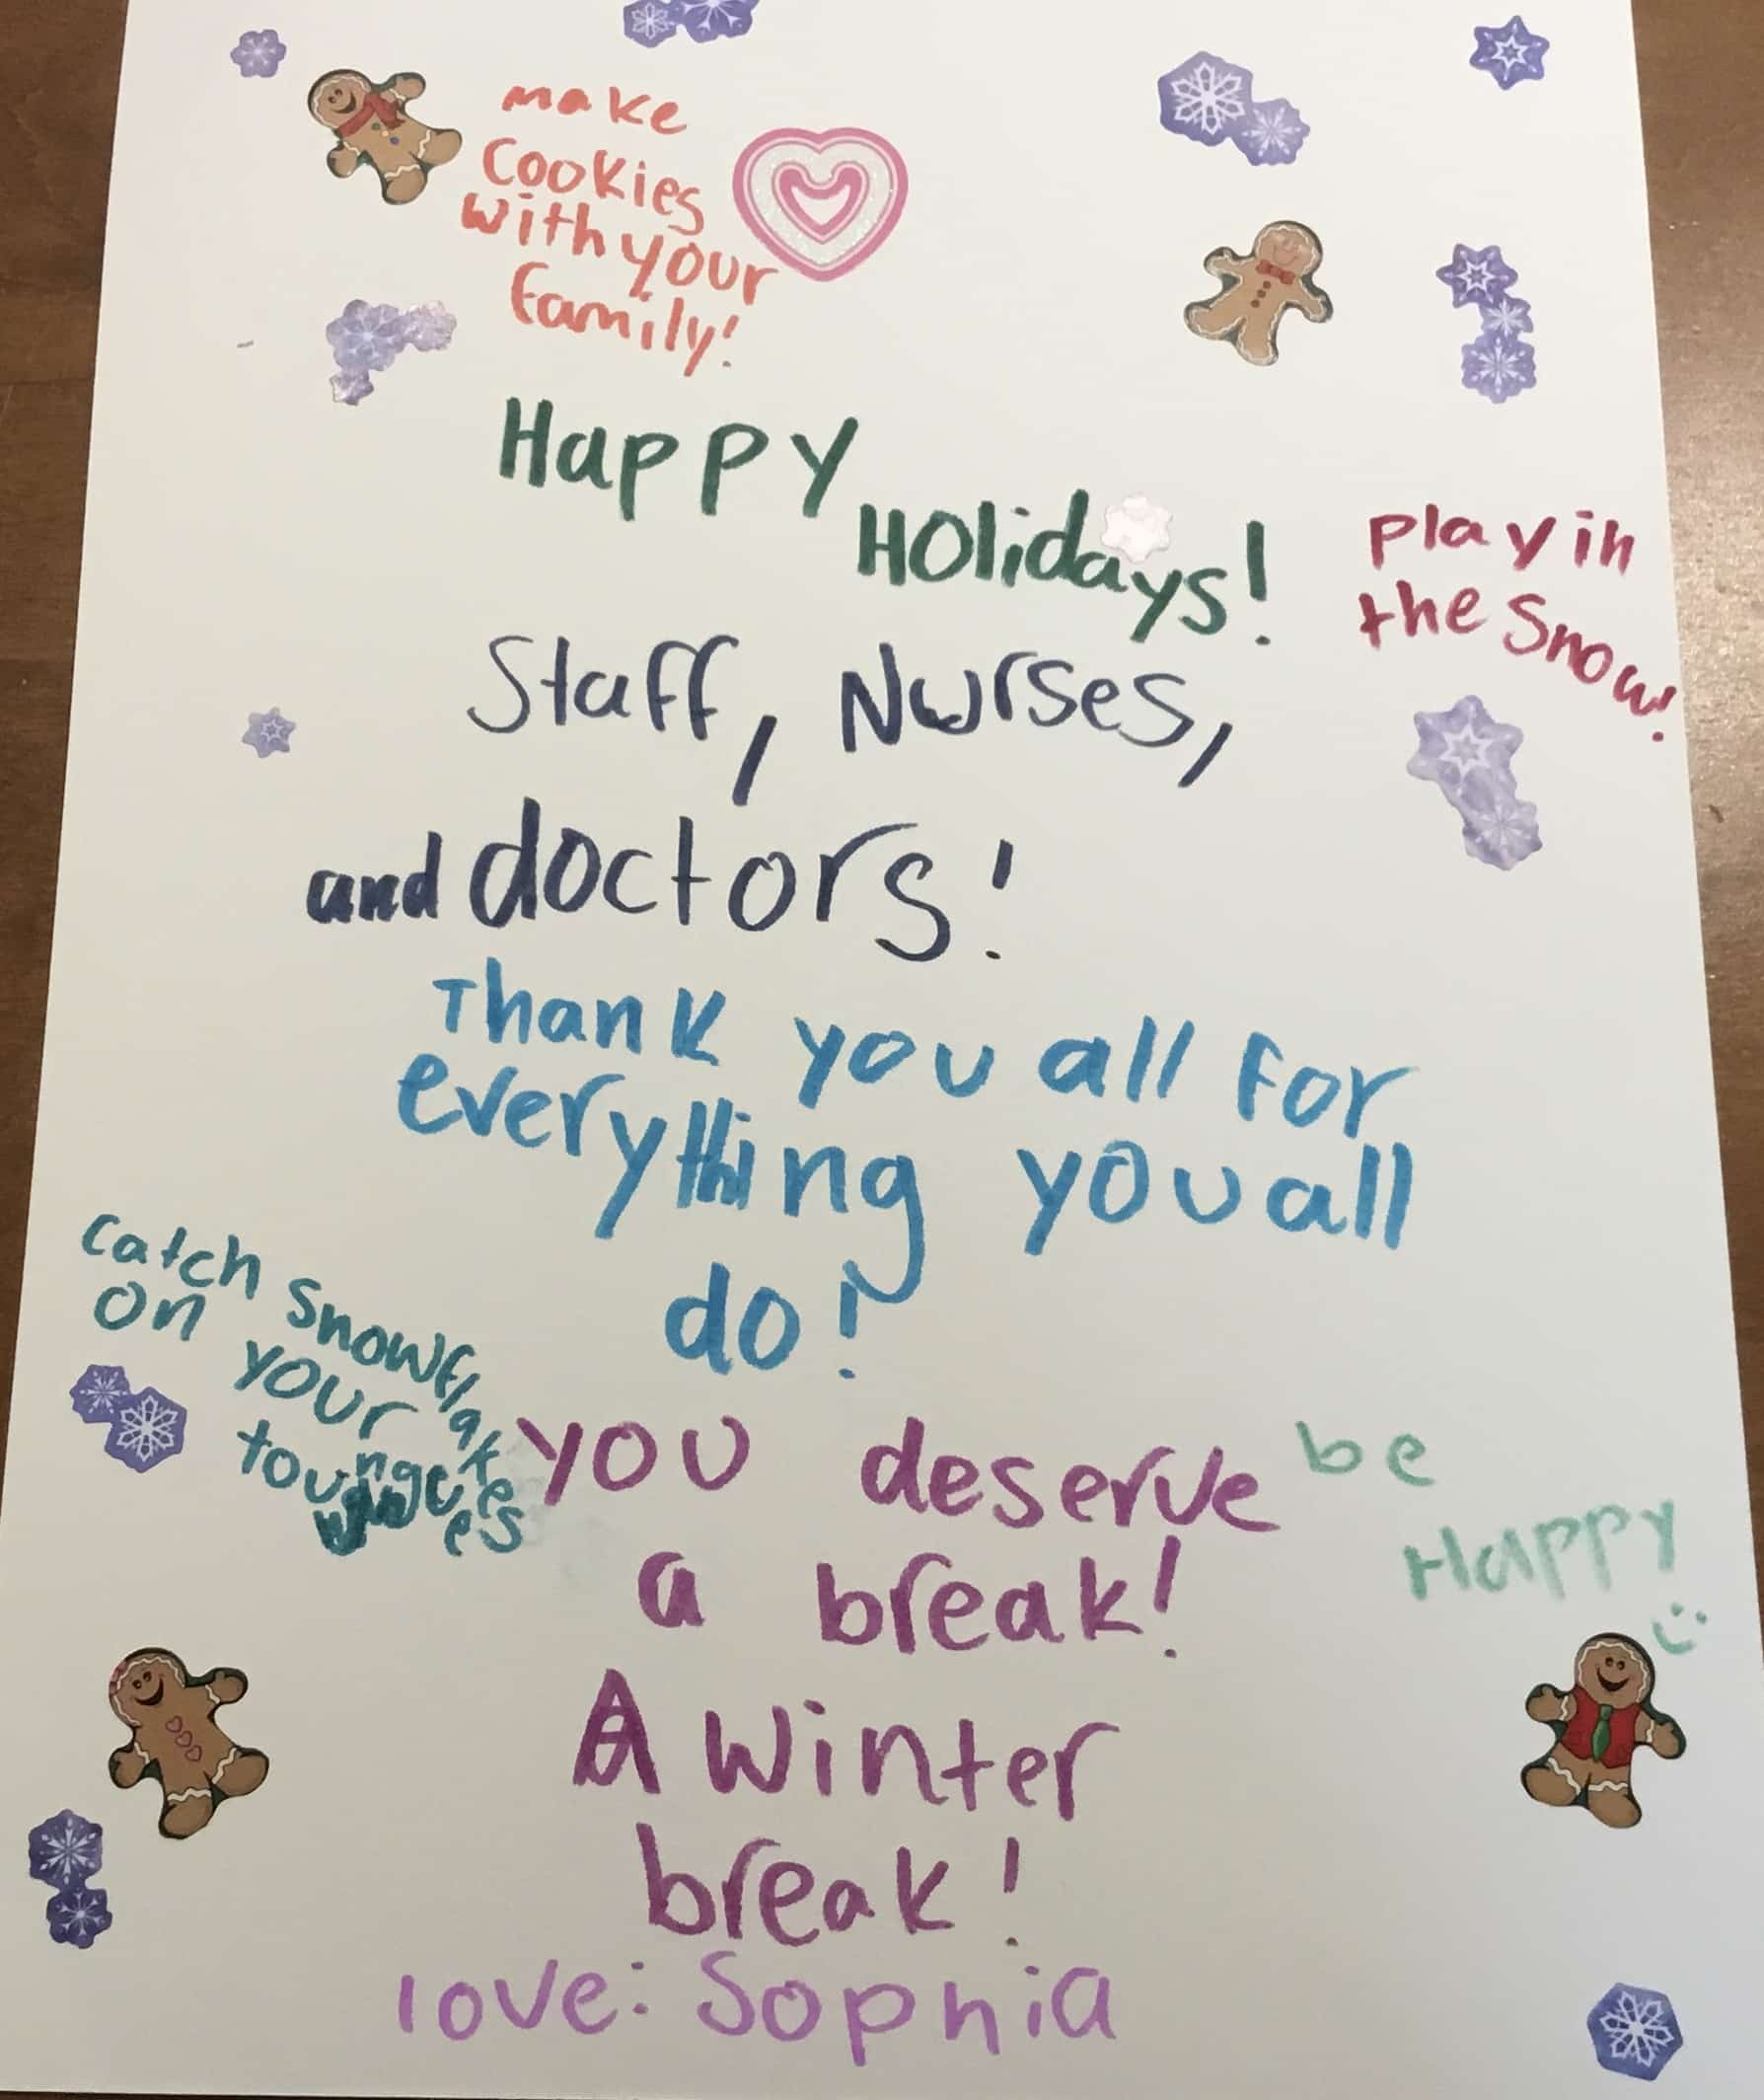 make
Cookies
with your
family!
Happy
Holidays!
Play in
the Snow!
Staff, Nurses,
and doctors!
Thank you all for
everything you all
do!
Catch Snowflakes
on your
tounguees
you deserve
a break!
be
Happy
:)
A Winter
break!
love: Sophia